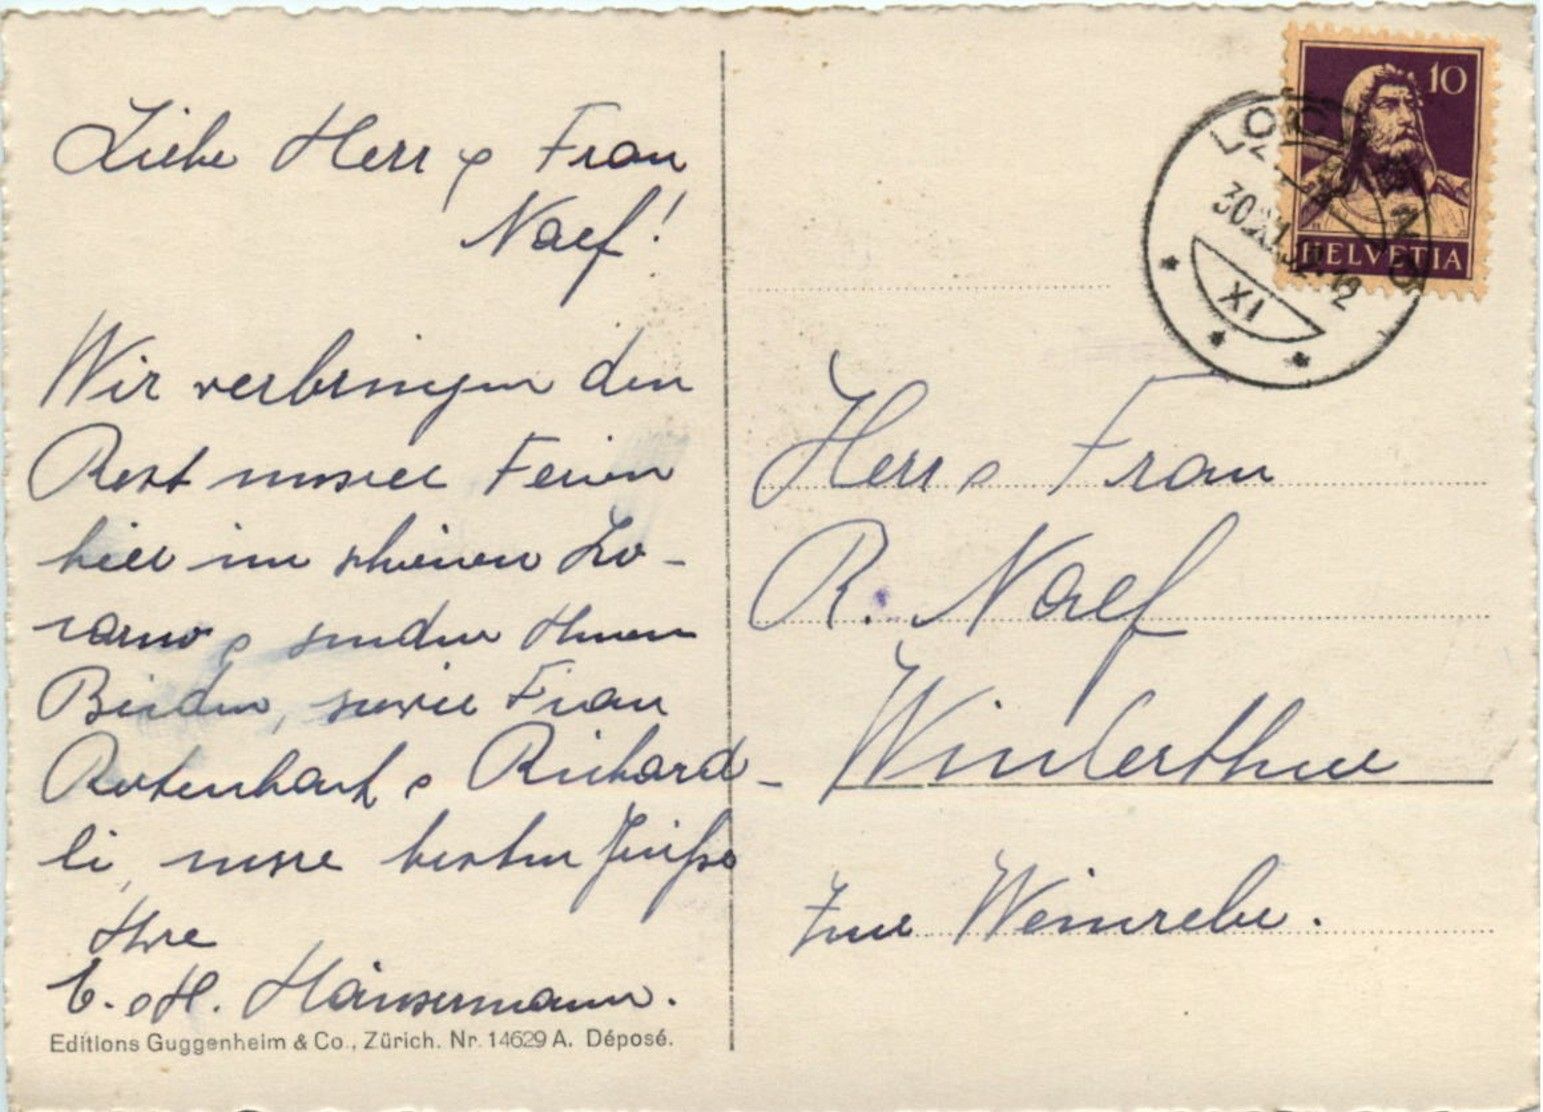 Liebe Herr & Frau
Naef!
Wir verbringen den
Rest unserer Ferien
hier im schönen Lo-
carno & senden Ihnen
Beiden, sowie Frau
& Richard-
li, unsre besten Grüsse
Ihre
E. & H. Hänsermann.
Editions Guggenheim & Co., Zürich. Nr. 14629 A. Déposé.
10
HELVETIA
LOCARNO
30.XI.
12
XI
Herr & Frau
R. Naef
Winterthur
Zur Weinrebe.